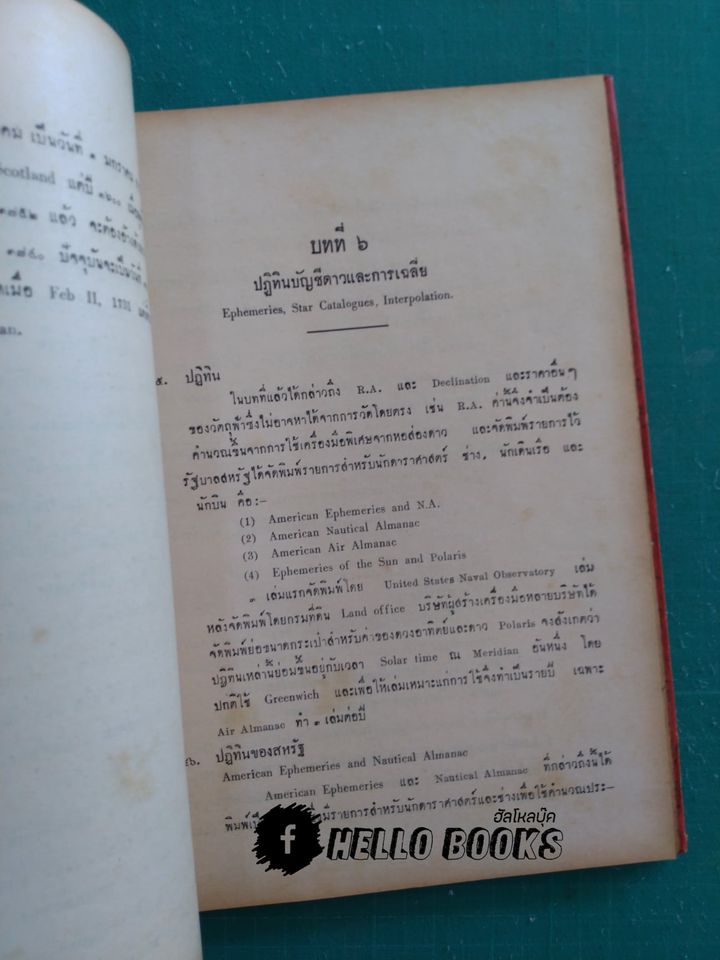 คม เป็นวันที่ ๑ มกราคม
Scotland แต่ปี ๑๖๐๐
๑๗๕๒ แล้ว จะต้องอ้าง
๑๗๔๐ ปัจจุบันจะเป็นวันที่
เมื่อ Feb II, 1731
an.
บทที่ ๖
ปฏิทินบัญชีดาวและการเฉลี่ย
Ephemeries, Star Catalogues, Interpolation.
๕. ปฏิทิน
ในบทที่แล้วได้กล่าวถึง R.A. และ Declination และราคาอื่นๆ
ของวัตถุฟ้าซึ่งไม่อาจหาได้จากการวัดโดยตรง เช่น R.A. ค่านี้จึงจำเป็นต้อง
คำนวณขึ้นจากการใช้เครื่องมือพิเศษจากหอส่องดาว และจัดพิมพ์รายการไว้
รัฐบาลสหรัฐได้จัดพิมพ์รายการสำหรับนักดาราศาสตร์ ช่าง, นักเดินเรือ และ
นักบิน คือ:-
(1) American Ephemeries and N.A.
(2) American Nautical Almanac
(3) American Air Almanac
(4) Ephemeries of the Sun and Polaris
๓ เล่มแรกจัดพิมพ์โดย United States Naval Observatory เล่ม
หลังจัดพิมพ์โดยกรมที่ดิน Land office บริษัทผู้สร้างเครื่องมือหลายบริษัทได้
จัดพิมพ์ย่อขนาดกระเป๋าสำหรับค่าของดวงอาทิตย์และดาว Polaris จงสังเกตว่า
ปฏิทินเหล่านี้ย่อมขึ้นอยู่กับเวลา Solar time ณ Meridian อันหนึ่ง โดย
ปกติใช้ Greenwich และเพื่อให้เล่มเหมาะแก่การใช้จึงทำเป็นรายปี เฉพาะ
Air Almanac ทำ ๓ เล่มต่อปี
๕๖. ปฏิทินของสหรัฐ
American Ephemeries and Nautical Almanac
American Ephemeries และ Nautical Almanac ที่กล่าวถึงนี้ได้
พิมพ์เป็น มีรายการสำหรับนักดาราศาสตร์และช่างเพื่อใช้คำนวณประ-
ฮัลโหลบุ๊ค
f HELLO BOOKS